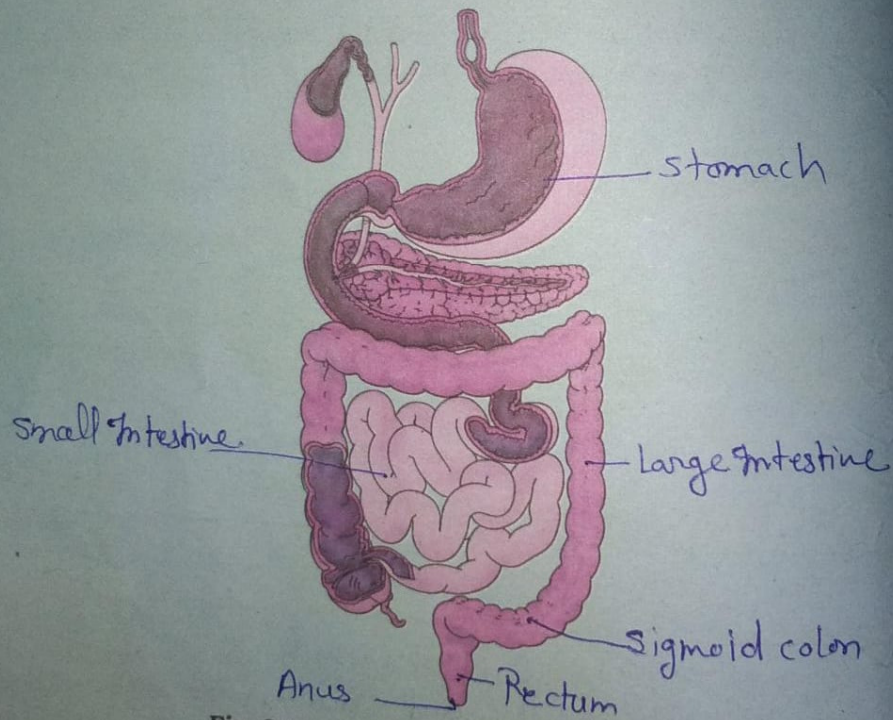 Stomach
Small Intestine.
Large Intestine
Sigmoid colon
Anus
Rectum